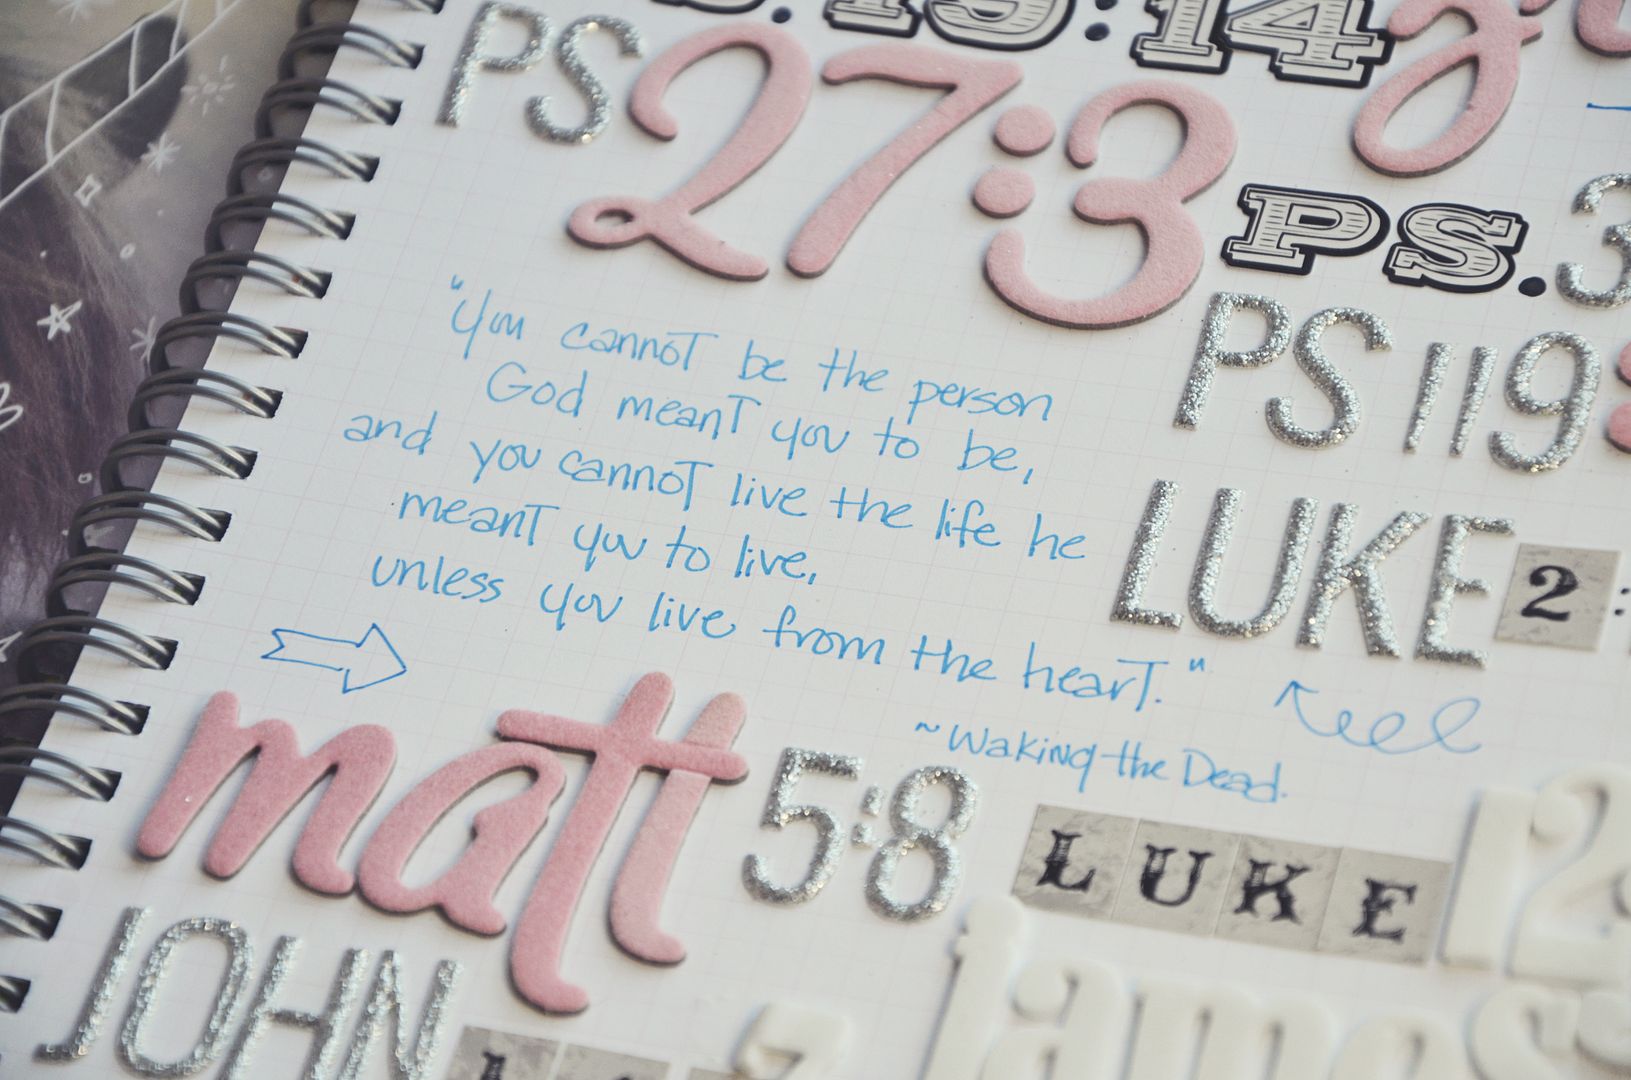 19:14
PS
27:3
PS.
PS 119
"You cannot be the person
God meant you to be,
and you cannot live the life he
meant you to live,
unless you live from the heart."
~Waking the Dead.
LUKE 2:
matt 5:8
LUKE 12
JOHN
james